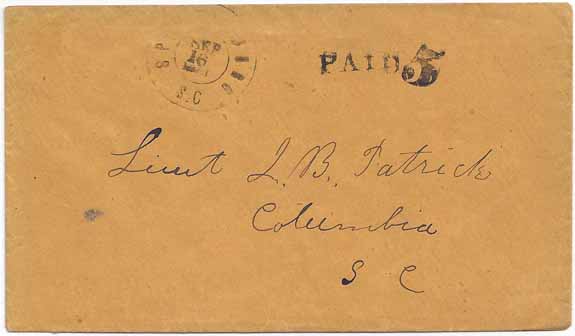 SEP
16
S.C
PAID 5
Lieut J. B. Patrick
Columbia
S C